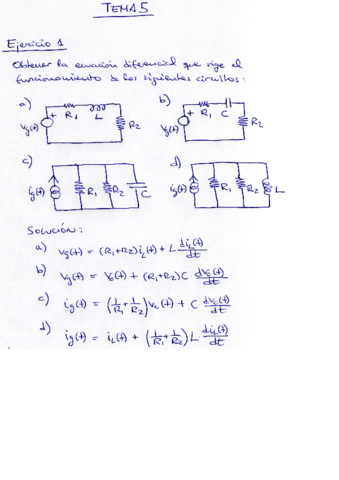 TEMA 5
Ejercicio 1
Obtener la ecuación diferencial que rige el
funcionamiento de los siguientes circuitos:
a) + vg(t) R1 L R2
b) + vg(t) R1 C R2
c) ig(t) R1 R2 C
d) ig(t) R1 R2 L
SOLUCIÓN:
a) vg(t) = (R1+R2) iL(t) + L diL(t)/dt
b) vg(t) = vc(t) + (R1+R2) C · dvc(t)/dt
c) ig(t) = (1/R1 + 1/R2) vc(t) + C dvc(t)/dt
d) ig(t) = iL(t) + (1/R1 + 1/R2) L diL(t)/dt